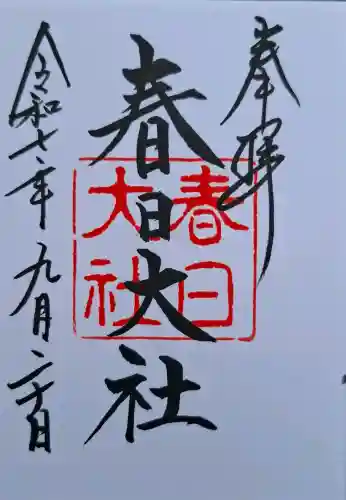 奉拝
春日大社
春日
大社
令和七年九月二十日